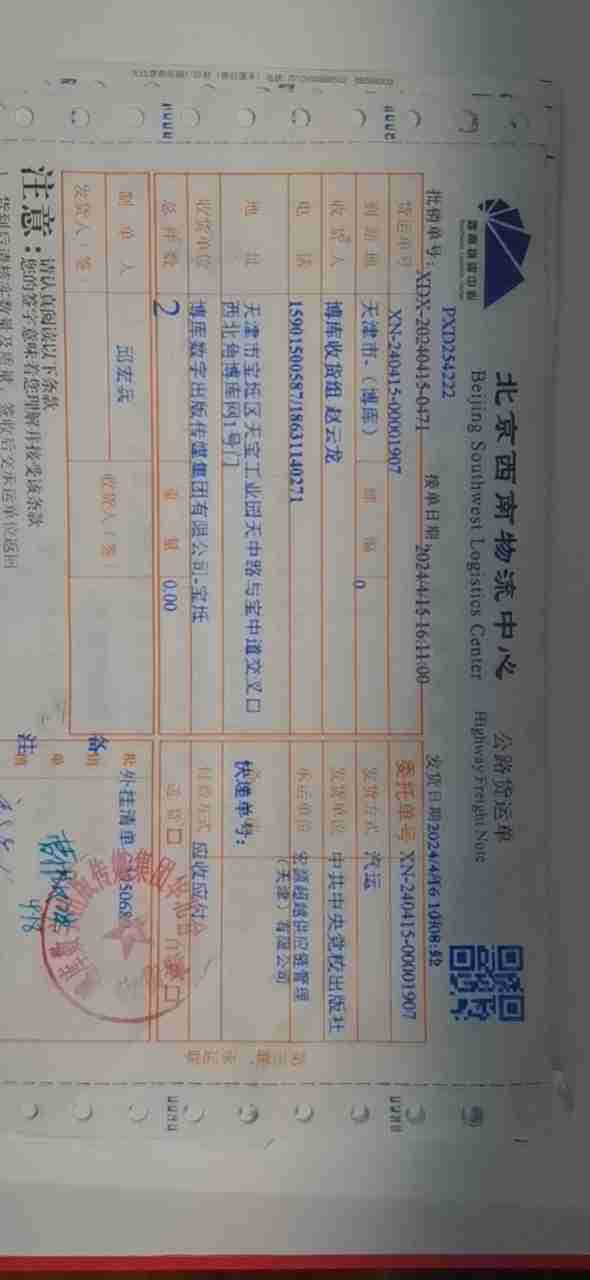 北京西南物流中心 公路货运单
Beijing Southwest Logistics Center Highway Freight Note
西南物流中心
PXD254222
批销单号：XDX-20240415-0471 接单日期 2024/4/15 16:11:00 发货日期
货运单号 XN-240415-00001907 委托单号 XN-240415-00001907
到站地 天津市-（博库） 邮编 0 发货方式 汽运
收货人 博库收货组 赵云龙 发货单位 中共中央党校出版社
电话 15901500587/18631140271 承运单位 宏源超越供应链管理
（天津）有限公司
地址 天津市宝坻区天宝工业园天中路与宝中道交叉口
西北角博库网1号门
快递单号：
收货单位 博库数字出版传媒集团有限公司-宝坻 付款方式 应收应付
总件数 2 重量 0.00 送货口 自提口
制单人 邱宏兵 收货人（签） 外挂清单
发货人（签）
备注
第三联：承运联
注意：请认真阅读以下条款
您的签字意味着您理解并接受该条款